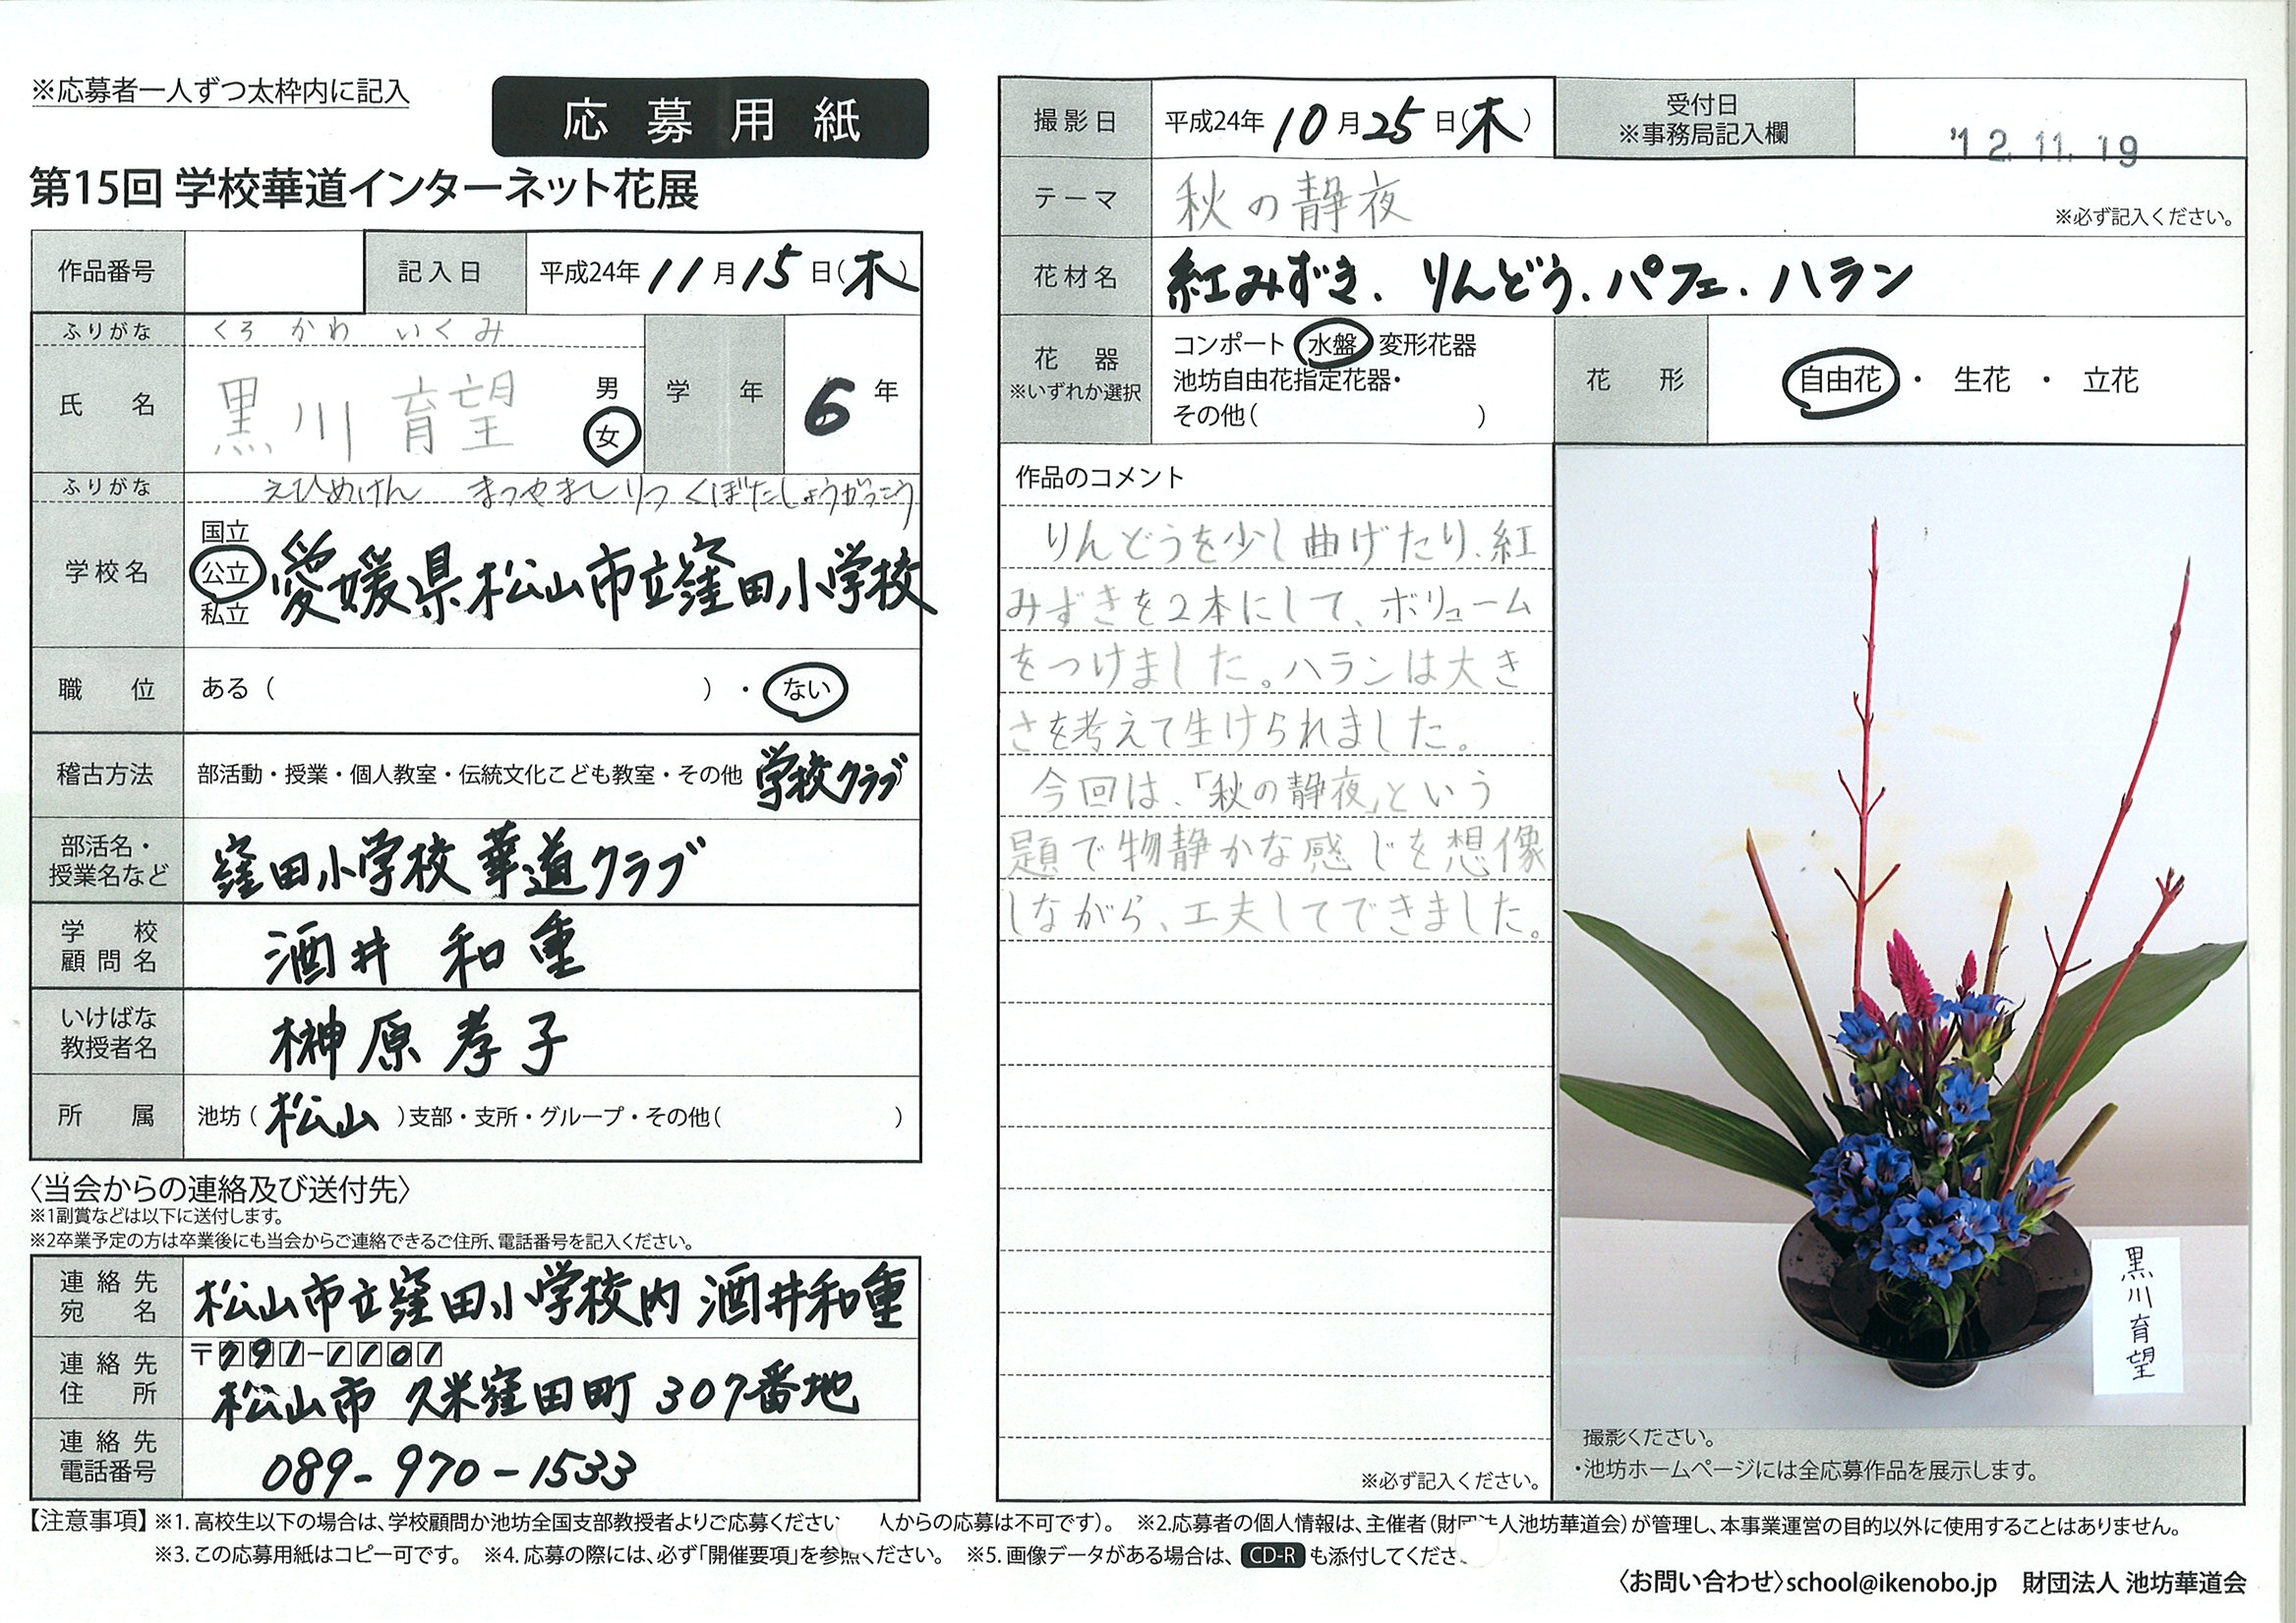 ※応募者一人ずつ太枠内に記入
応募用紙
第15回 学校華道インターネット花展
作品番号
記入日 平成24年11月15日(木)
ふりがな くろ かわ いくみ
氏名 黒川 育望 男 女
学年 6年
ふりがな えひめけん まつやましりつ くぼたしょうがっこう
学校名 国立 公立 私立 愛媛県松山市立窪田小学校
職位 ある( )・ない
稽古方法 部活動・授業・個人教室・伝統文化こども教室・その他 学校クラブ
部活名・
授業名など 窪田小学校 華道クラブ
学校
顧問名 酒井 和重
いけばな
教授者名 榊原 孝子
所属 池坊(松山)支部・支所・グループ・その他( )
〈当会からの連絡及び送付先〉
※1副賞などは以下に送付します。
※2卒業予定の方は卒業後にも当会からご連絡できるご住所、電話番号を記入ください。
連絡先
宛名 松山市立窪田小学校内 酒井和重
連絡先
住所 〒791-1101
松山市 久米窪田町 307番地
連絡先
電話番号 089-970-1533
撮影日 平成24年10月25日(木)
受付日
※事務局記入欄 '12.11.19
テーマ 秋の静夜
※必ず記入ください。
花材名 紅みずき. りんどう. パフェ. ハラン
花器
※いずれか選択
コンポート 水盤 変形花器
池坊自由花指定花器・
その他( )
花形 自由花 ・ 生花 ・ 立花
作品のコメント
りんどうを少し曲げたり、紅
みずきを2本にして、ボリューム
をつけました。ハランは大き
さを考えて生けられました。
今回は、「秋の静夜」という
題で物静かな感じを想像
しながら、工夫してできました。
※必ず記入ください。
黒川育望
撮影ください。
・池坊ホームページには全応募作品を展示します。
【注意事項】※1. 高校生以下の場合は、学校顧問か池坊全国支部教授者よりご応募ください 人からの応募は不可です)。 ※2.応募者の個人情報は、主催者(財団法人池坊華道会)が管理し、本事業運営の目的以外に使用することはありません。
※3. この応募用紙はコピー可です。 ※4. 応募の際には、必ず「開催要項」を参照ください。 ※5. 画像データがある場合は、CD-Rも添付してくださ
〈お問い合わせ〉school@ikenobo.jp 財団法人 池坊華道会